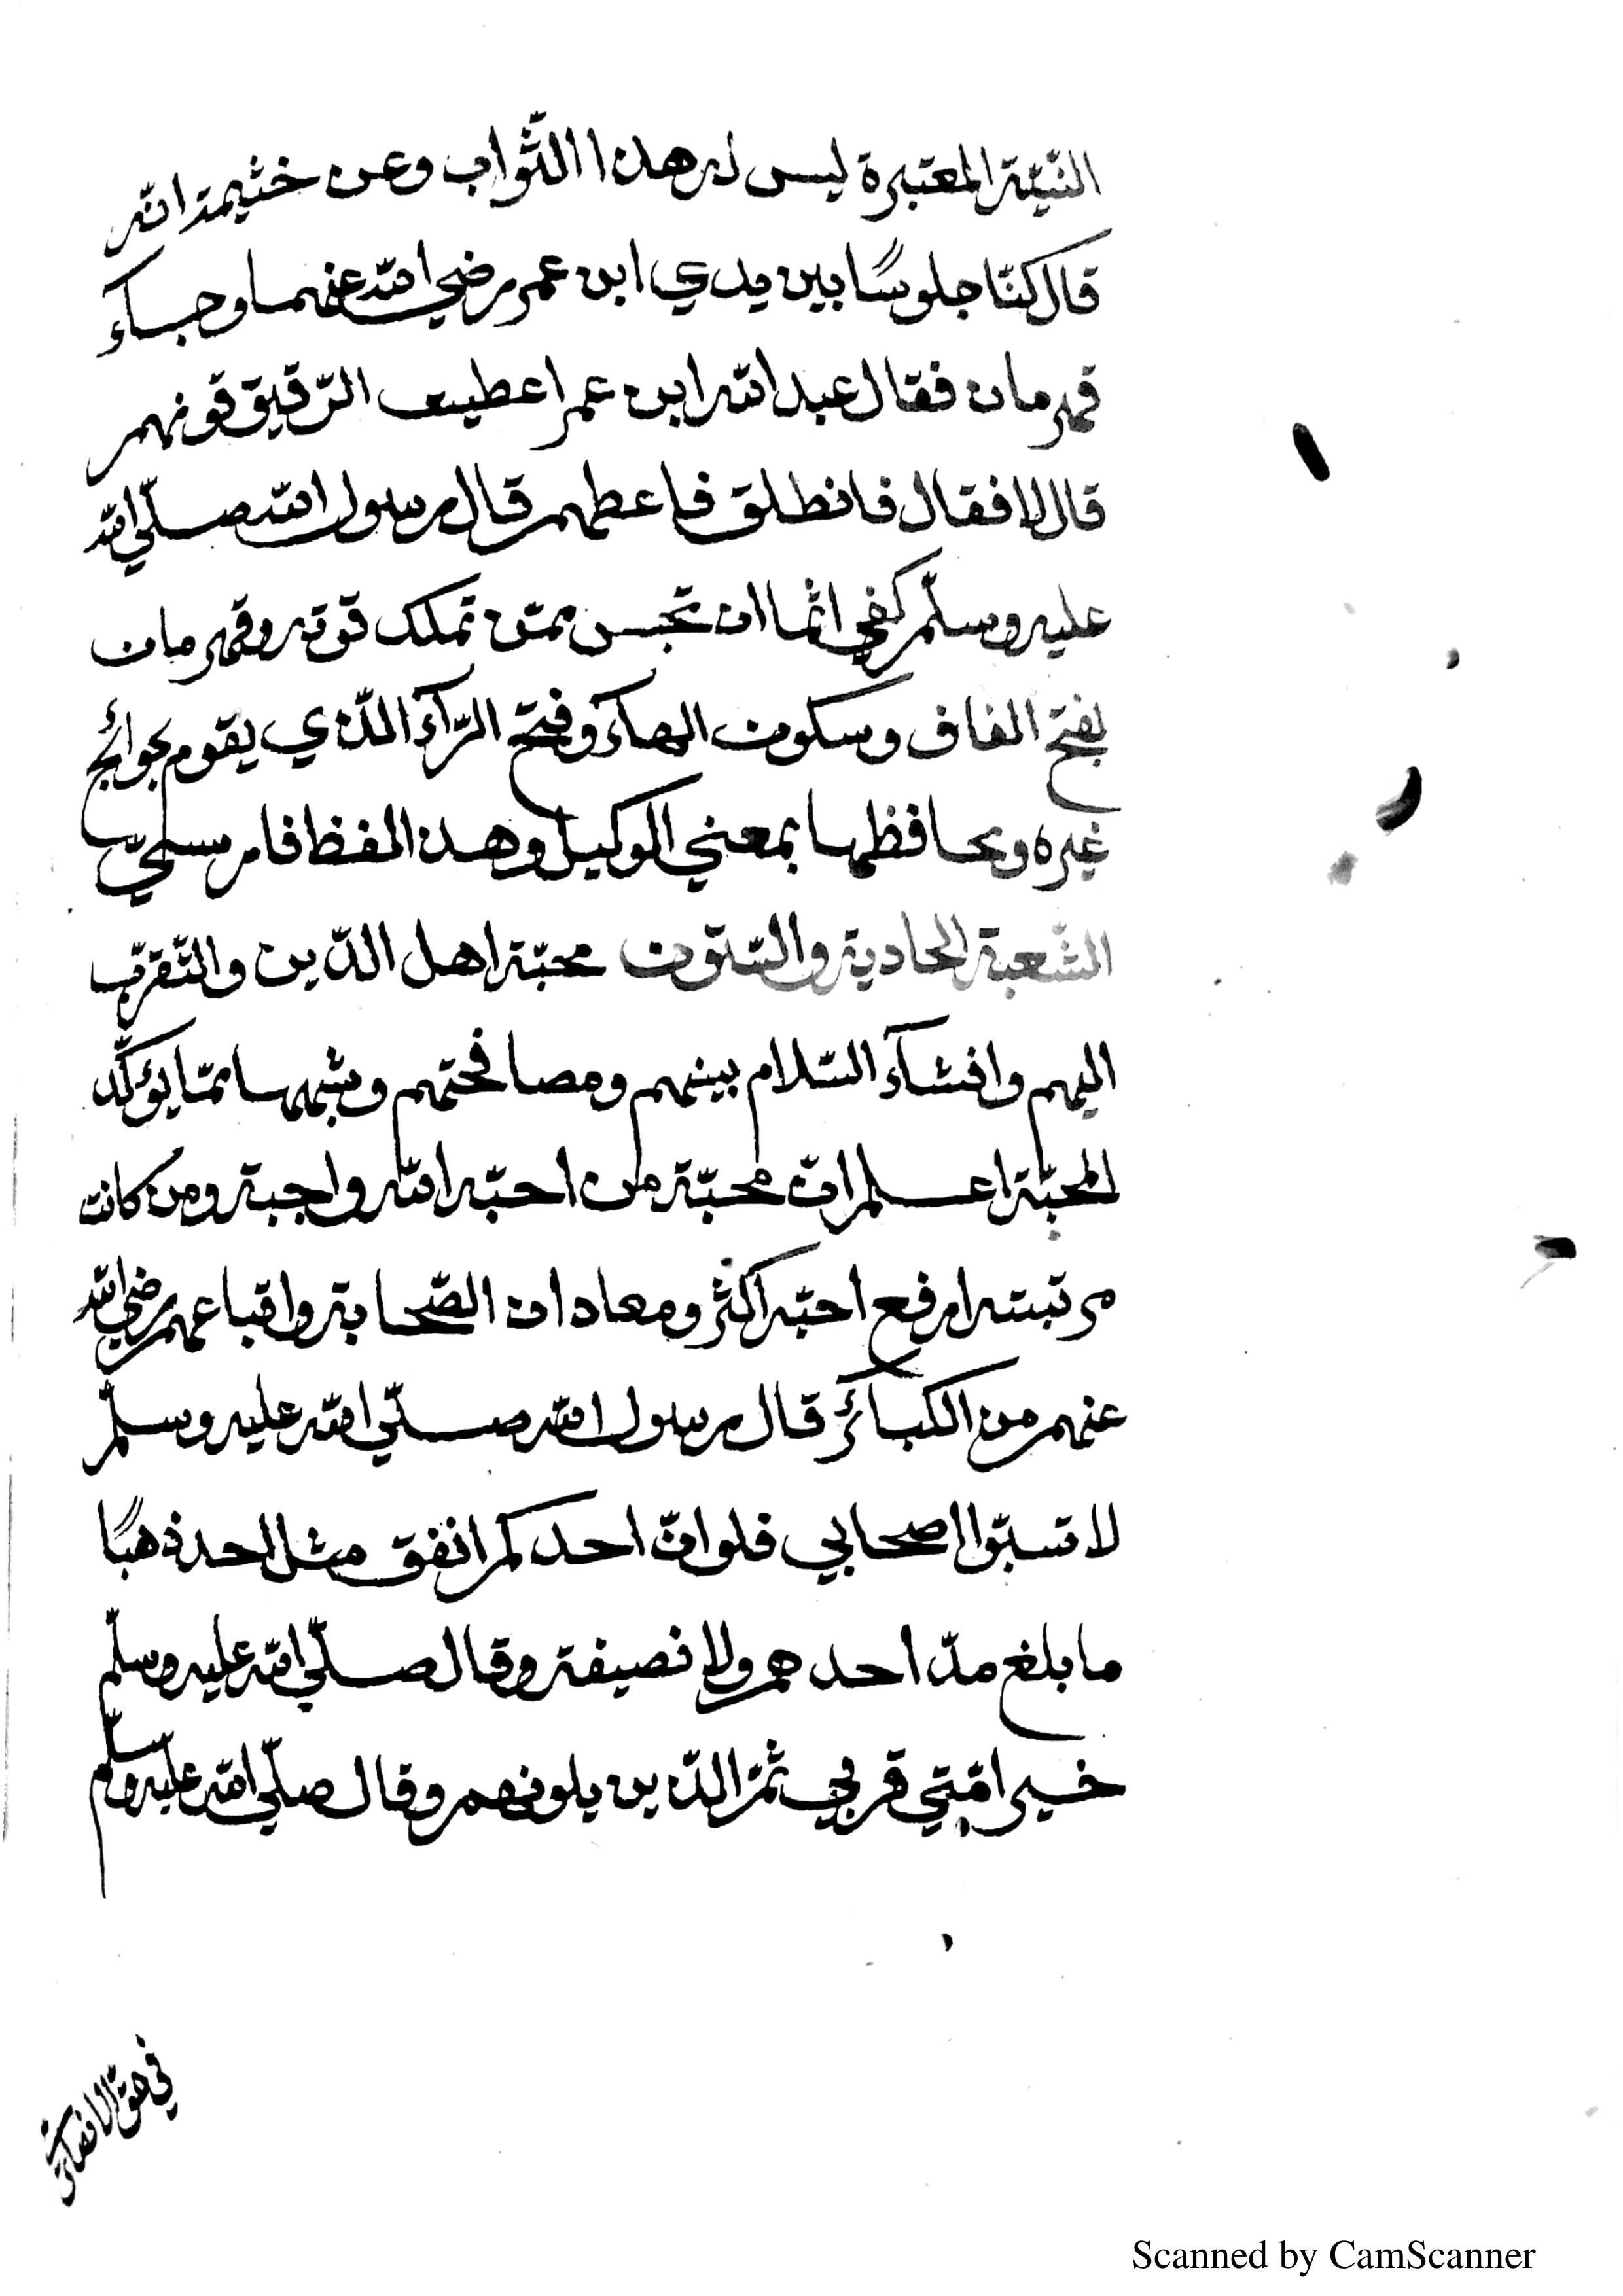 النّيّة المعتبرة ليس له هذا الثّواب وعن خثيمة انّه
قال كنّا جلوسًا بين يدي ابن عمر رضي الله عنهما وجاء
قهرمان فقال عبد الله ابن عمر اعطيت الرّقيق قوتهم
قال لا فقال فانطلق فاعطهم قال رسول الله صلّي الله
عليه وسلّم كفي اثما ان تحبس عمّن تملك قوته وقهرمان
بفتح القاف وسكون الهاء وفتح الرّاء الّذي يقوم بحوائج
غيره ويحافظها بمعني الوكيل وهذ المفظ فارسيّ
الشّعبة الحادية والسّتّون محبّة اهل الدّين والتّقرّب
اليهم وافشاء السّلام بينهم ومصافحتهم وشبهها ممّا يؤكّد
المحبّة اعلم انّ محبّة من احبّه الله واجبة ومن كانت
مرتبته ارفع احبّه اكثر ومعادات الصّحابة واتباعهم رضي الله
عنهم من الكبائر قال رسول الله صلّي الله عليه وسلّم
لا تسبّوا اصحابي فلو انّ احدكم انفق مثل احد ذهبًا
ما بلغ مدّ احدهم ولا نصيفة وقال صلّي الله عليه وسلّم
خير امّتي قربي ثمّ الّذين يلونهم وقال صلّي الله عليه وسلّم
في حقّ الانصار
Scanned by CamScanner